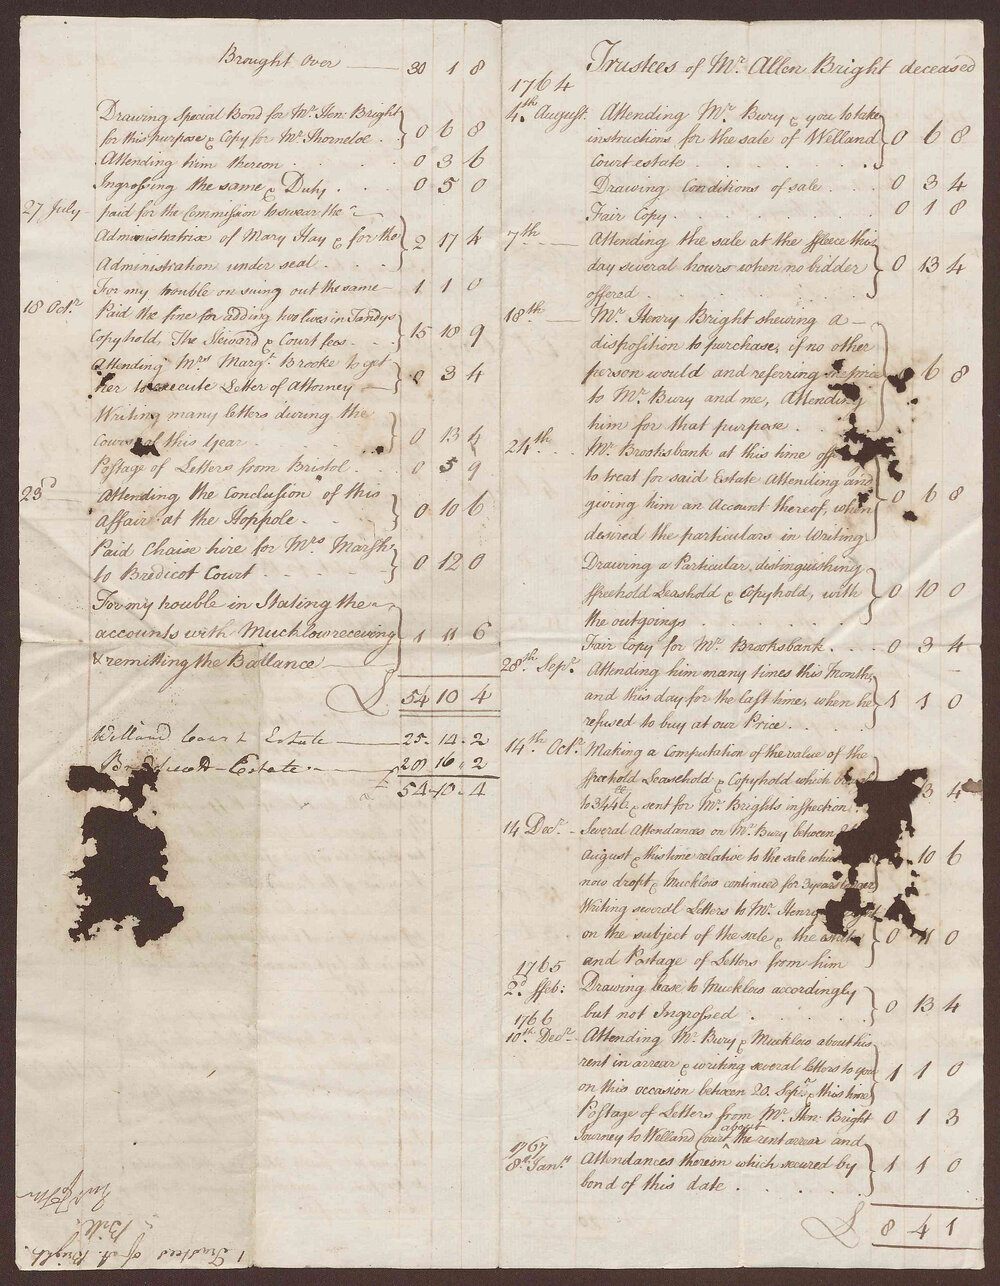 Brought Over — 30 1 8
Drawing Special Bond for Mr. Hen: Bright
for this purpose & Copy for Mr. Thorneloe . 0 6 8
Attending him thereon . . . 0 3 6
Ingrossing the same & Duty . . . 0 5 0
27 July – paid for the Commission to swear the
Administratrix of Mary Hay & for the 2 17 4
Administration under seal . . .
For my trouble on suing out the same – 1 1 0
18 Octr. Paid the fine for adding two lives in Tandys
Copyhold, The Steward & Court fees . . 15 18 9
Attending Mrs. Margt. Brooke to get
her to execute Letter of Attorney – 0 3 4
Writing many letters during the
Course of this Year . . . 0 13 4
Postage of Letters from Bristol . . 0 5 9
23d Attending the Conclusion of this
affair at the Hoppole . . . 0 10 6
Paid Chaise hire for Mrs. Marsh
to Bredicot Court . . . . 0 12 0
For my trouble in Stating the
accounts with Mucklow receiving 1 11 6
& remitting the Ballance
£ 54 10 4
Welland Court Estate — 25 - 14 - 2
Estate . — 28 16 - 2
£ 54 - 10 - 4
Bill
Trustees of A Bright
Trustees of Mr. Allen Bright deceased
1764
4th August. Attending Mr. Bury & you to take
instructions for the sale of Welland 0 6 8
Court estate . . . .
Drawing Conditions of sale . . . 0 3 4
Fair Copy . . . . 0 1 8
7th — Attending the sale at the ffleece this
day several hours when no bidder 0 13 4
offered . . . .
18th — Mr. Henry Bright shewing a
disposition to purchase, if no other
person would and referring 6 8
to Mr. Bury and me, Attending
him for that purpose . .
24th . . Mr. Brooksbank at this time
to treat for said Estate Attending and
giving him an Account thereof, when 0 6 8
desired the particulars in Writing
Drawing a Particular, distinguishing
ffreehold Leashold & Copyhold, with 0 10 0
the outgoings . . . .
Fair Copy for Mr. Brooksbank . . . 0 3 4
28th. Sepr. Attending him many times this Month,
and this day for the last time, when he 1 1 0
refused to buy at our Price . . .
14th Octr. Making a Computation of the value of the
ffreehold Leasehold & Copyhold which 3 4
to 344 & sent for Mr. Brights inspection
14 Decr. – Several Attendances on Mr. Bury between
August & this time relative to the sale 10 6
now dropt & Mucklow continued for 3 years longer
Writing severll Letters to Mr. Henry
on the subject of the sale & the 0 11 0
and Postage of Letters from him
1765
2d. ffeb: Drawing base to Mucklow accordingly
but not Ingrossed . . . . 0 13 4
1766
10th. Decr. Attending Mr. Bury & Mucklow about his
rent in arrear & writing several letters to you 1 1 0
on this occasion between 20 Sepr. & this time
Postage of Letters from Mr. Hen: Bright 0 1 3
1767
Journey to Welland Court about the rent arrear and
8th. Janr. Attendances thereon which secured by 1 1 0
bond of this date . . . . .
£ 8 4 1